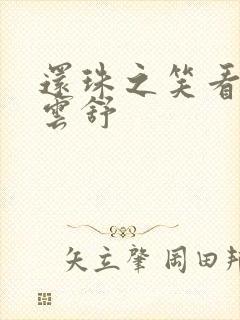 還珠之笑看
雲舒
矢立肇 岡田邦